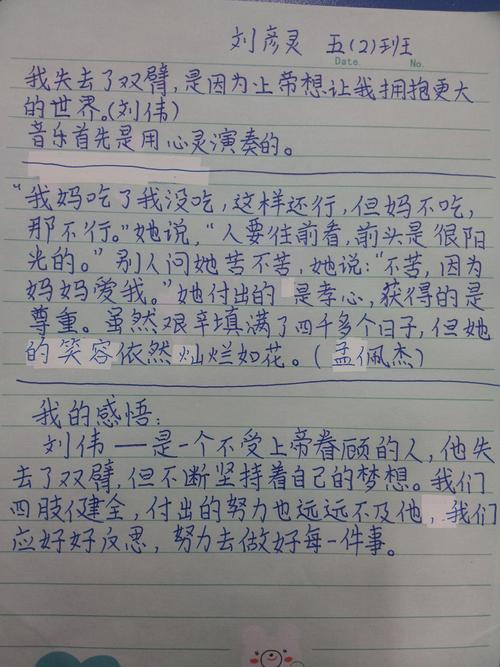 刘彦灵 五(2)班
Date. No.
我失去了双臂,是因为上帝想让我拥抱更大
的世界。(刘伟)
音乐首先是用心灵演奏的。
“我妈吃了我没吃,这样还行,但妈不吃,
那不行。”她说,“人要往前看,前头是很阳
光的。”别人问她苦不苦,她说:“不苦,因为
妈妈爱我。”她付出的是孝心,获得的是
尊重。虽然艰辛填满了四千多个日子,但她
的笑容依然灿烂如花。(孟佩杰)
我的感悟:
刘伟——是一个不受上帝眷顾的人,他失
去了双臂,但不断坚持着自己的梦想。我们
四肢健全,付出的努力也远远不及他,我们
应好好反思,努力去做好每一件事。